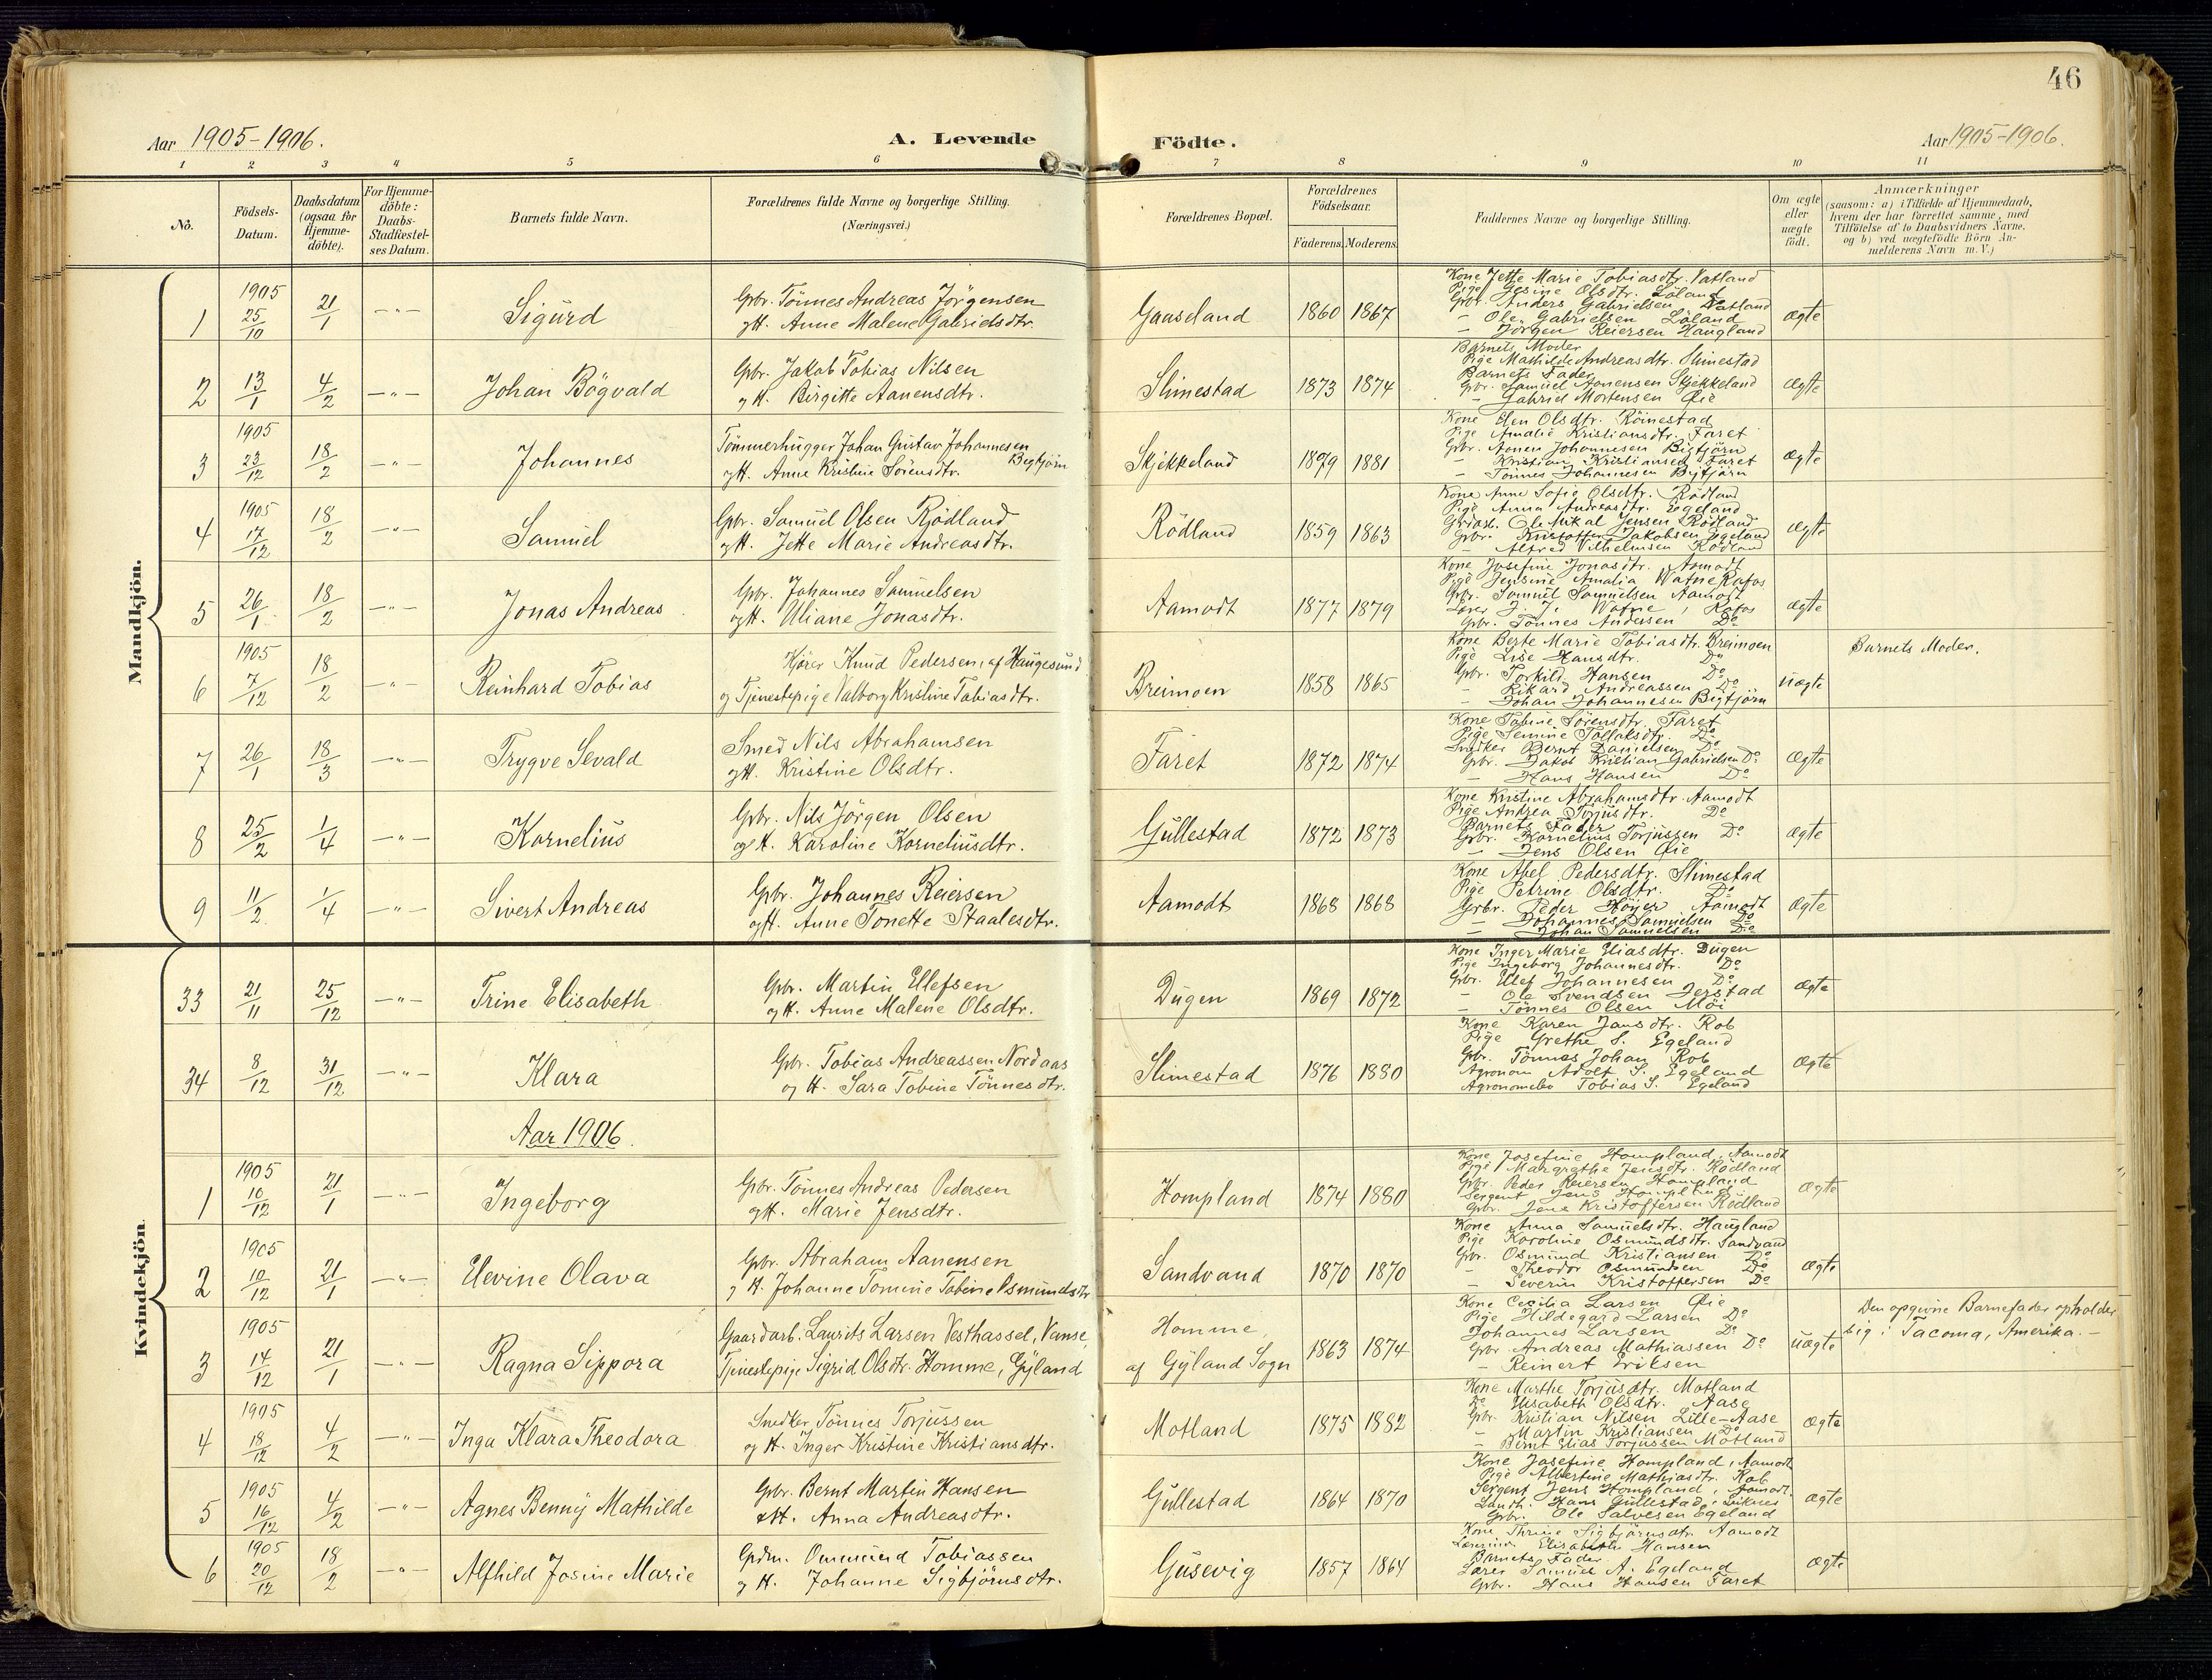 46
Aar 1905-1906.
A. Levende Födte.
Aar 1905-1906.
1 2 3 4 5 6 7 8 9 10 11
No.
Födsels-
Datum.
Daabsdatum
(ogsaa for
Hjemme-
döbte).
For Hjemme-
döbte:
Daabs-
Stadfæstel-
ses Datum.
Barnets fulde Navn.
Forældrenes fulde Navne og borgerlige Stilling.
(Næringsvei.)
Forældrenes Bopæl.
Forældrenes
Födselsaar.
Faderens. Moderens.
Faddernes Navne og borgerlige Stilling.
Om ægte
eller
uægte
födt.
Anmærkninger
(saasom: a) i Tilfælde af Hjemmedaab,
hvem der har forrettet samme, med
Tilföielse af to Daabsvidners Navne.
og b) ved uægtefödte Börn An-
melderens Navn m. V.)
Mandkjön.
1
1905
25/10
21/1
-"-
Sigurd
Gbr. Tönnes Andreas Jörgensen
og H. Anne Malene Gabrielsdtr.
Gaaseland
1860 1867
Kone Jette Marie Tobiasdtr. Vatland
Pige Gesine Olsdtr. Löland
Gbr. Anders Gabrielsen Vatland
- Ole Gabrielsen Löland
- Jörgen Reiersen Haugland
Ægte
2
13/1
4/2
-"-
Johan Bögvald
Gbr. Jakob Tobias Nilsen
og H. Birgitte Aanensdtr.
Slimestad
1873 1874
Barnets Moder
Pige Mathilde Andreasdtr. Slimestad
Barnets Fader
Gbr. Samuel Aanensen Skjekkeland
- Gabriel Mortensen Öie
Ægte
3
1905
23/12
18/2
-"-
Johannes
Tömmerhugger Johan Gustav Johannesen
Bigtjörn
og H. Anne Kristine Sörensdtr.
Skjekkeland
1879 1881
Kone Elen Olsdtr. Röinestad
Pige Amalie Kristiansdtr. Faret
Gbr. Aanen Johannesen Bigtjörn
- Kristian Kristiansen Faret
- Tönnes Johannesen Bigtjörn
Ægte
4
1905
17/12
18/2
-"-
Samuel
Gbr. Samuel Olsen Rjödland
og H. Jette Marie Andreasdtr.
Rödland
1859 1863
Kone Anne Sofie Olsdtr. Rödland
Pige Anna Andreasdtr. Egeland
Gaardarb. Ole Mikal Jensen Rödland
Gbr. Kristoffer Jakobsen Egeland
- Alfred Vilhelmsen Rödland
Ægte
5
26/1
18/2
-"-
Jonas Andreas
Gbr. Johannes Samuelsen
og H. Uliane Jonasdtr.
Aamodt
1877 1879
Kone Josefine Jonasdtr. Aamodt
Pige Jensine Amalia Watne Rafos
Gbr. Samuel Samuelsen Aamodt
Lærer J. J. Watne, Rafos
Gbr. Tönnes Andersen Do
Ægte
6
1905
7/12
18/2
-"-
Reinhard Tobias
Kjörer Knud Pedersen, af Haugesund
og Tjenestepige Valborg Kristine Tobiasdtr.
Breimoen
1858 1865
Kone Berte Marie Tobiasdtr. Breimoen
Pige Lise Hansdtr. Do
Gbr. Torkild Hansen Do
- Rikard Andreassen Do
- Johan Johannesen Bigtjörn
Uægte
Barnets Moder.
7
26/1
18/3
-"-
Trygve Sevald
Smed Nils Abrahamsen
og H. Kristine Olsdtr.
Faret
1872 1874
Kone Tobine Sörensdtr. Faret
Pige Semine Tollaksdtr. Do
Snedker Bernt Danielsen Do
Gbr. Jakob Kristian Gabrielsen Do
- Hans Hansen Do
Ægte
8
25/2
1/4
-"-
Kornelius
Gbr. Nils Jörgen Olsen
og H. Karoline Korneliusdtr.
Gullestad
1872 1873
Kone Kristine Abrahamsdtr. Aamodt
Pige Andrea Torjusdtr. Do
Barnets Fader
Gbr. Kornelius Torjussen Do
- Jens Olsen Öie
Ægte
9
11/2
1/4
-"-
Sivert Andreas
Gbr. Johannes Reiersen
og H. Anne Tonette Staalesdtr.
Aamodt
1868 1868
Kone Abel Pedersdtr. Slimestad
Pige Petrine Olsdtr. Do
Gbr. Peder Höyer Aamodt
- Johannes Samuelsen Do
- Johan Samuelsen Do
Ægte
Kvindekjön.
33
21/11
25/12
-"-
Trine Elisabeth
Gbr. Martin Ellefsen
og H. Anne Malene Olsdtr.
Dugen
1869 1872
Kone Inger Marie Eliasdtr. Dugen
Pige Ingeborg Johannesdtr. Do
Gbr. Ellef Johannesen Do
- Ole Svendsen Jerstad
- Tönnes Olsen Moi
Ægte
34
8/12
31/12
-"-
Klara
Gbr. Tobias Andreassen Nordaas
og H. Sara Tobine Tönnesdtr.
Slimestad
1876 1880
Kone Karen Jansdtr. Rob
Pige Grethe S. Egeland
Gbr. Tönnes Johan Rob
Agronom Adolf S. Egeland
Agronomelev Tobias S. Egeland
Ægte
Aar 1906.
1
1905
10/12
21/1
-"-
Ingeborg
Gbr. Tönnes Andreas Pedersen
og H. Marie Jensdtr.
Hompland
1874 1880
Kone Josefine Hompland, Aamodt
Pige Margrethe Jensdtr. Rödland
Gbr. Peder Reiersen Hompland
Sergent Jens Hompland
Gbr. Jens Kristoffersen Rödland
Ægte
2
1905
10/12
21/1
-"-
Elevine Olava
Gbr. Abraham Aanensen
og H. Johanne Tomine Tobine Osmundsdtr
Sandvand
1870 1870
Kone Anna Samuelsdtr. Haugland
Pige Karoline Osmundsdtr. Sandvand
Gbr. Osmund Kristiansen Do
- Theodor Osmundsen Do
- Severin Kristoffersen Do
Ægte
3
1905
14/12
21/1
-"-
Ragna Sippora
Gaardarb. Laurits Larsen Vesthassel, Vanse,
Tjenestepige Sigrid Olsdtr. Homme, Gyland
Homme,
af Gyland Sogn
1863 1874
Kone Cecilia Larsen Öie
Pige Hildegard Larsen Do
Johannes Larsen Do
Gbr. Andreas Mathiassen Do
- Reinert Eriksen
Uægte
Den opgivne Barnefader opholder
sig i Tacoma, Amerika.-
4
1905
18/12
4/2
-"-
Inga Klara Theodora
Snedker Tönnes Torjussen
og H. Inger Kristine Kristiansdtr.
Motland
1875 1882
Kone Marthe Torjusdtr. Motland
Do Elisabeth Olsdtr. Aase
Gbr. Kristian Nilsen Lille-Aase
- Martin Kristiansen Do
- Bernt Elias Torjussen Motland
Ægte
5
1905
16/12
4/2
-"-
Agnes Benny Mathilde
Gbr. Bernt Martin Hansen
og H. Anna Andreasdtr.
Gullestad
1864 1870
Kone Josefine Hompland, Aamodt
Pige Albertine Mathiasdtr. Rob
Sergent Jens Hompland, Aamodt
Landh. Hans Gullestad, Liknes
Gbr. Ole Salvesen Egeland
Ægte
6
1905
20/12
18/2
-"-
Alfhild Josine Marie
Gdm. Ommund Tobiassen
og H. Johanne Sigbjörnsdtr.
Gusevig
1857 1864
Kone Thrine Sigbjörnsdtr. Aamodt
Lærerinde Elisabeth Hansen
Barnets Fader
Lærer Samuel A. Egeland
Gbr. Hans Hansen Faret
Ægte